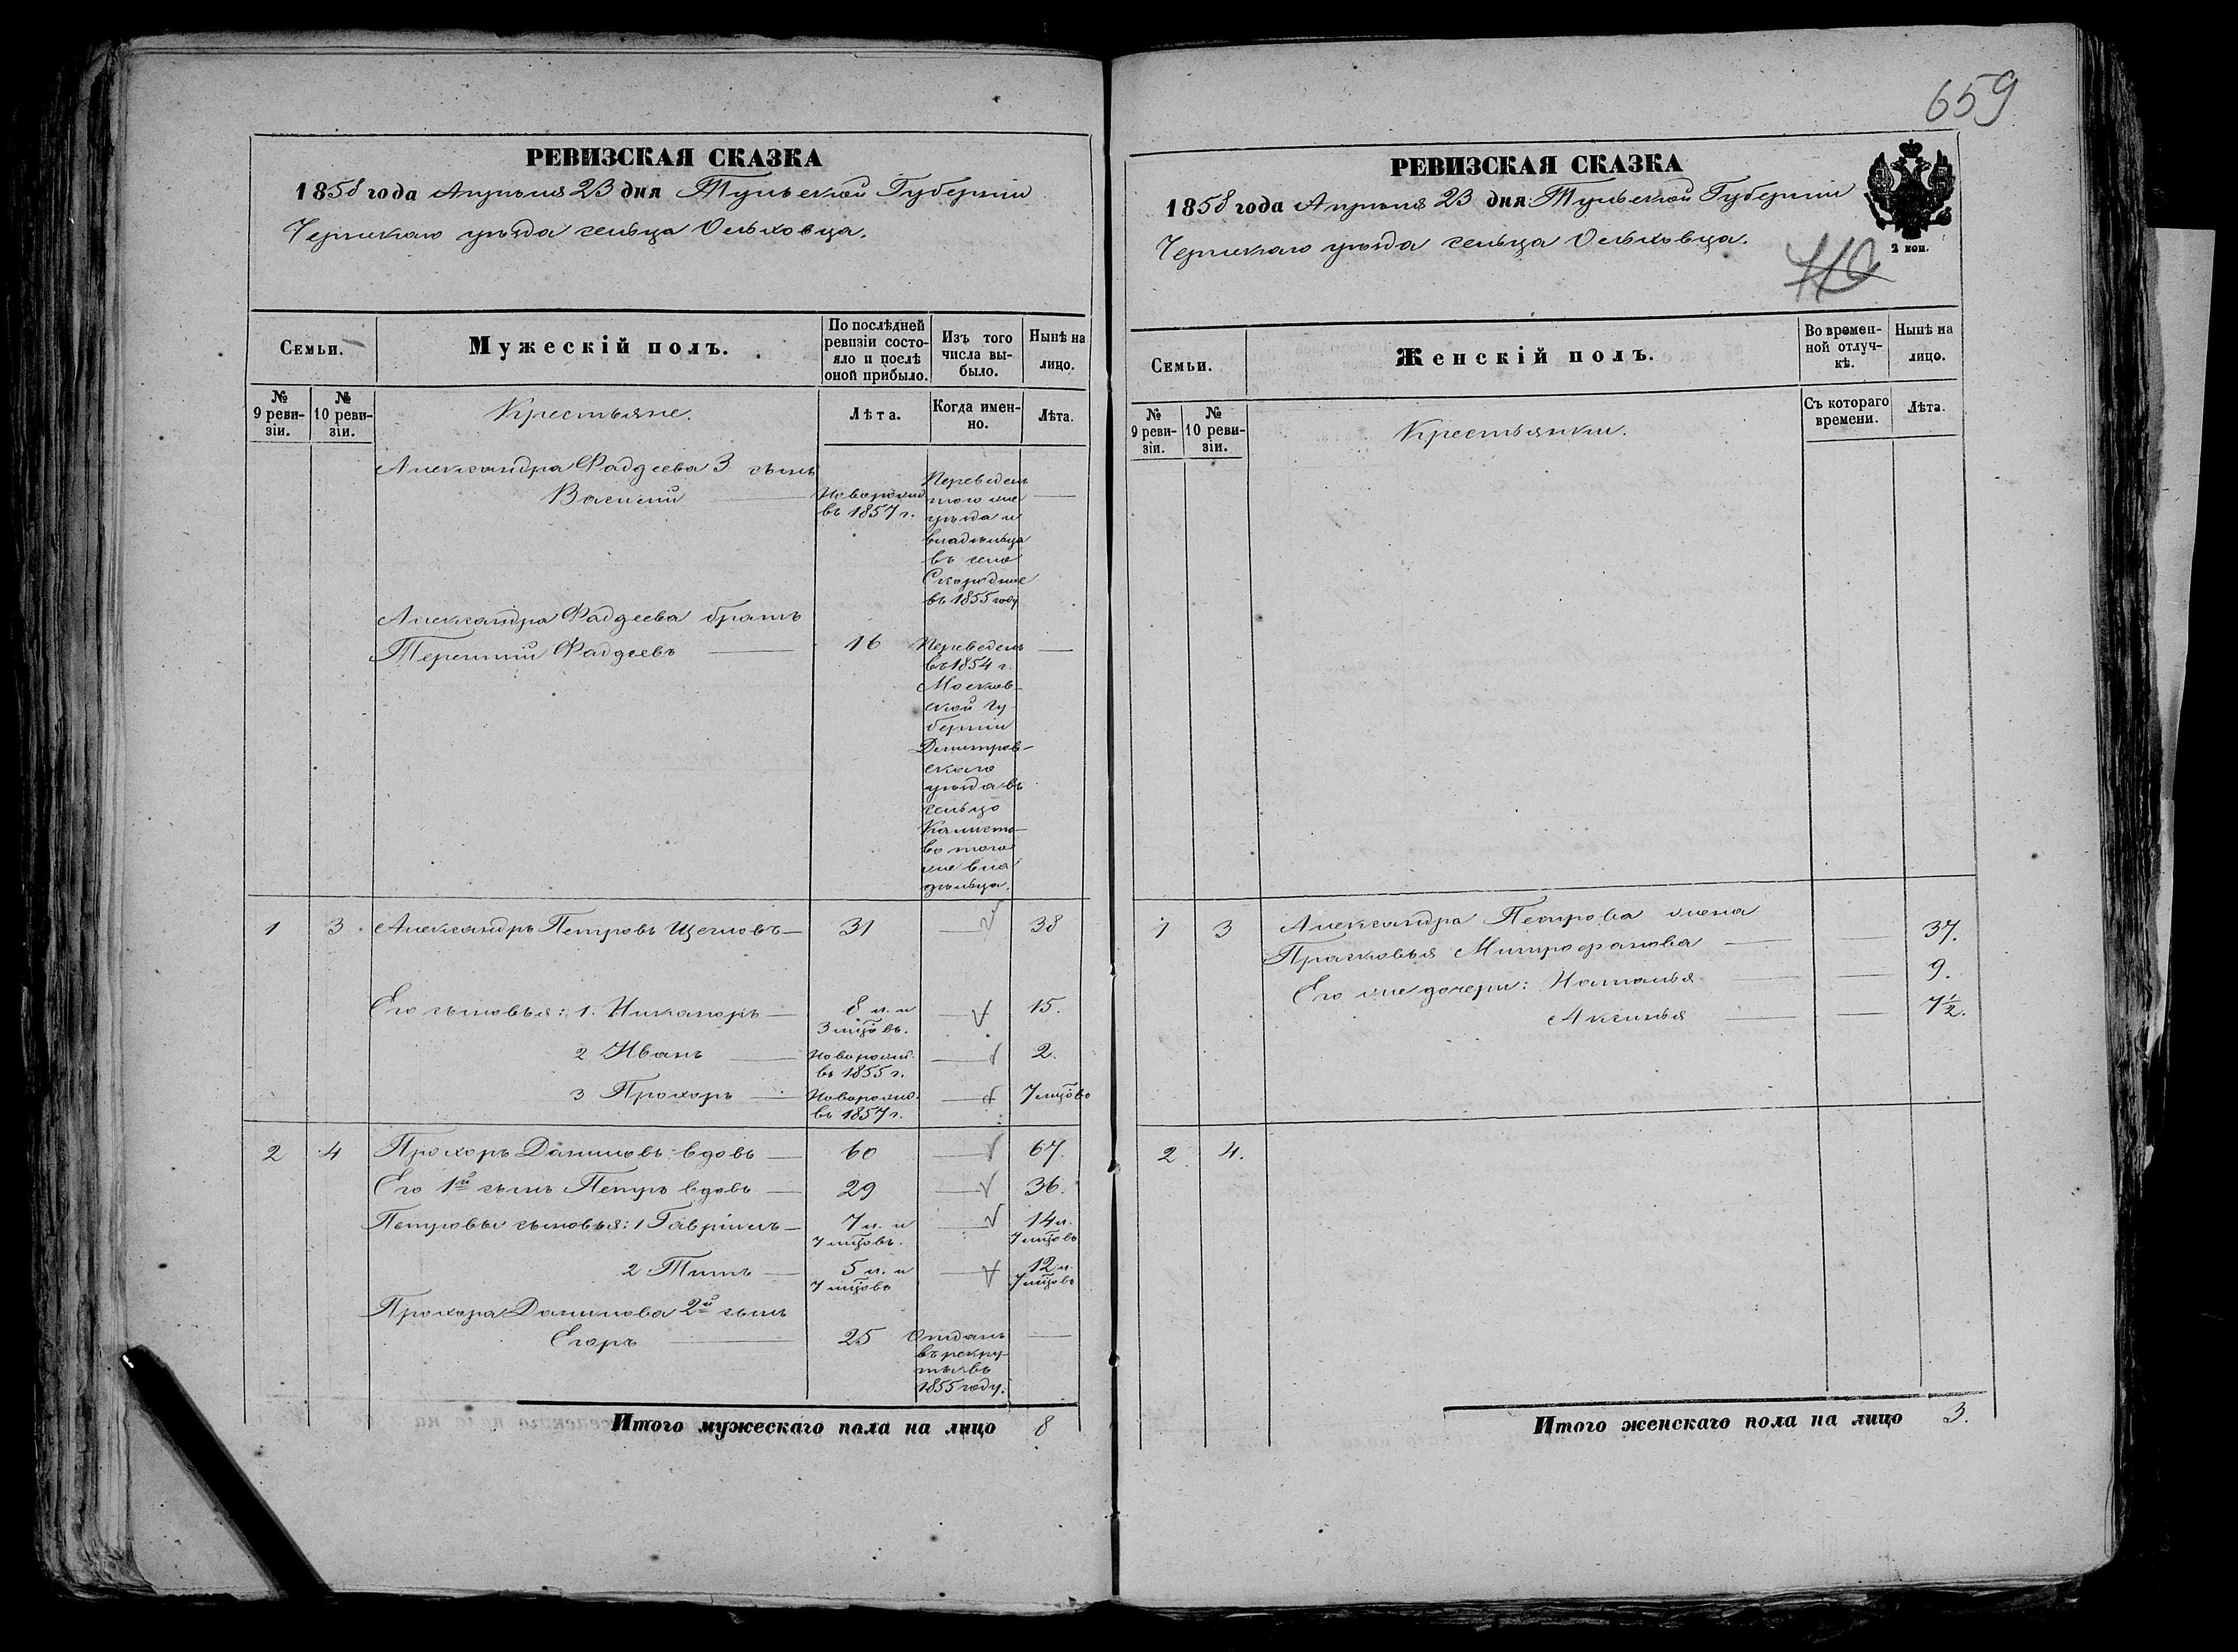 РЕВИЗСКАЯ СКАЗКА
1858 года Апрѣля 23 дня Тульской Губерніи
Чернскаго уѣзда сельца Ольховца.
Семьи.
Мужескій полъ.
По послѣдней ревизіи состояло и послѣ оной прибыло.
Изъ того числа выбыло.
Нынѣ на лицо.
№ 9 ревизіи.
№ 10 ревизіи.
Крестьяне.
Лѣта.
Когда именно.
Лѣта.
Александра Фадѣева 3 сынъ
Василій
Новорожд.
въ 1857 г.
Переведенъ
того же
уѣзда и
владѣльца
въ село
Скородное
въ 1855 году
Александра Фадѣева братъ
Терентий Фадѣевъ 16
Переведенъ
въ 1854 г.
Москов-
ской Гу-
берніи
Дмитров-
скаго
уѣзда въ
сельцо
того
же вла
дѣльца.
1 3 Александръ Петровъ Щегловъ 31 38
Его сыновья: 1. Никаноръ 8 л. и 15.
3 мцовъ.
2 Иванъ Новорожд. 2.
въ 1855 г.
3 Прохоръ Новорожд. 7 мцовъ
въ 1857 г.
2 4 Прохоръ Даниловъ вдовъ 60 67.
Его 1й сынъ Петръ вдовъ 29 36.
Петровы сыновья: 1 Гавріилъ 7 л. и 14 л.
7 мцовъ. 7 мцовъ
2 Титъ 5 л. и 12 л.
7 мцовъ 7 мцовъ
Прохора Данилова 2й сынъ
Егоръ 25 Отданъ
въ рекру-
ты въ
1855 году.
Итого мужескаго пола на лицо 8
659
РЕВИЗСКАЯ СКАЗКА
1858 года Апрѣля 23 дня Тульской Губерніи
Чернскаго уѣзда сельца Ольховца.
2 коп.
Семьи.
Женскій полъ.
Во временной отлучкѣ.
Нынѣ на лицо.
№ 9 ревизіи.
№ 10 ревизіи.
Крестьянки.
Съ котораго времени.
Лѣта.
1 3 Александра Петрова жена
Прасковья Митрофанова 37.
Его же дочери: Наталья 9.
Аксинья 7½.
2 4.
Итого женскаго пола на лицо 3.